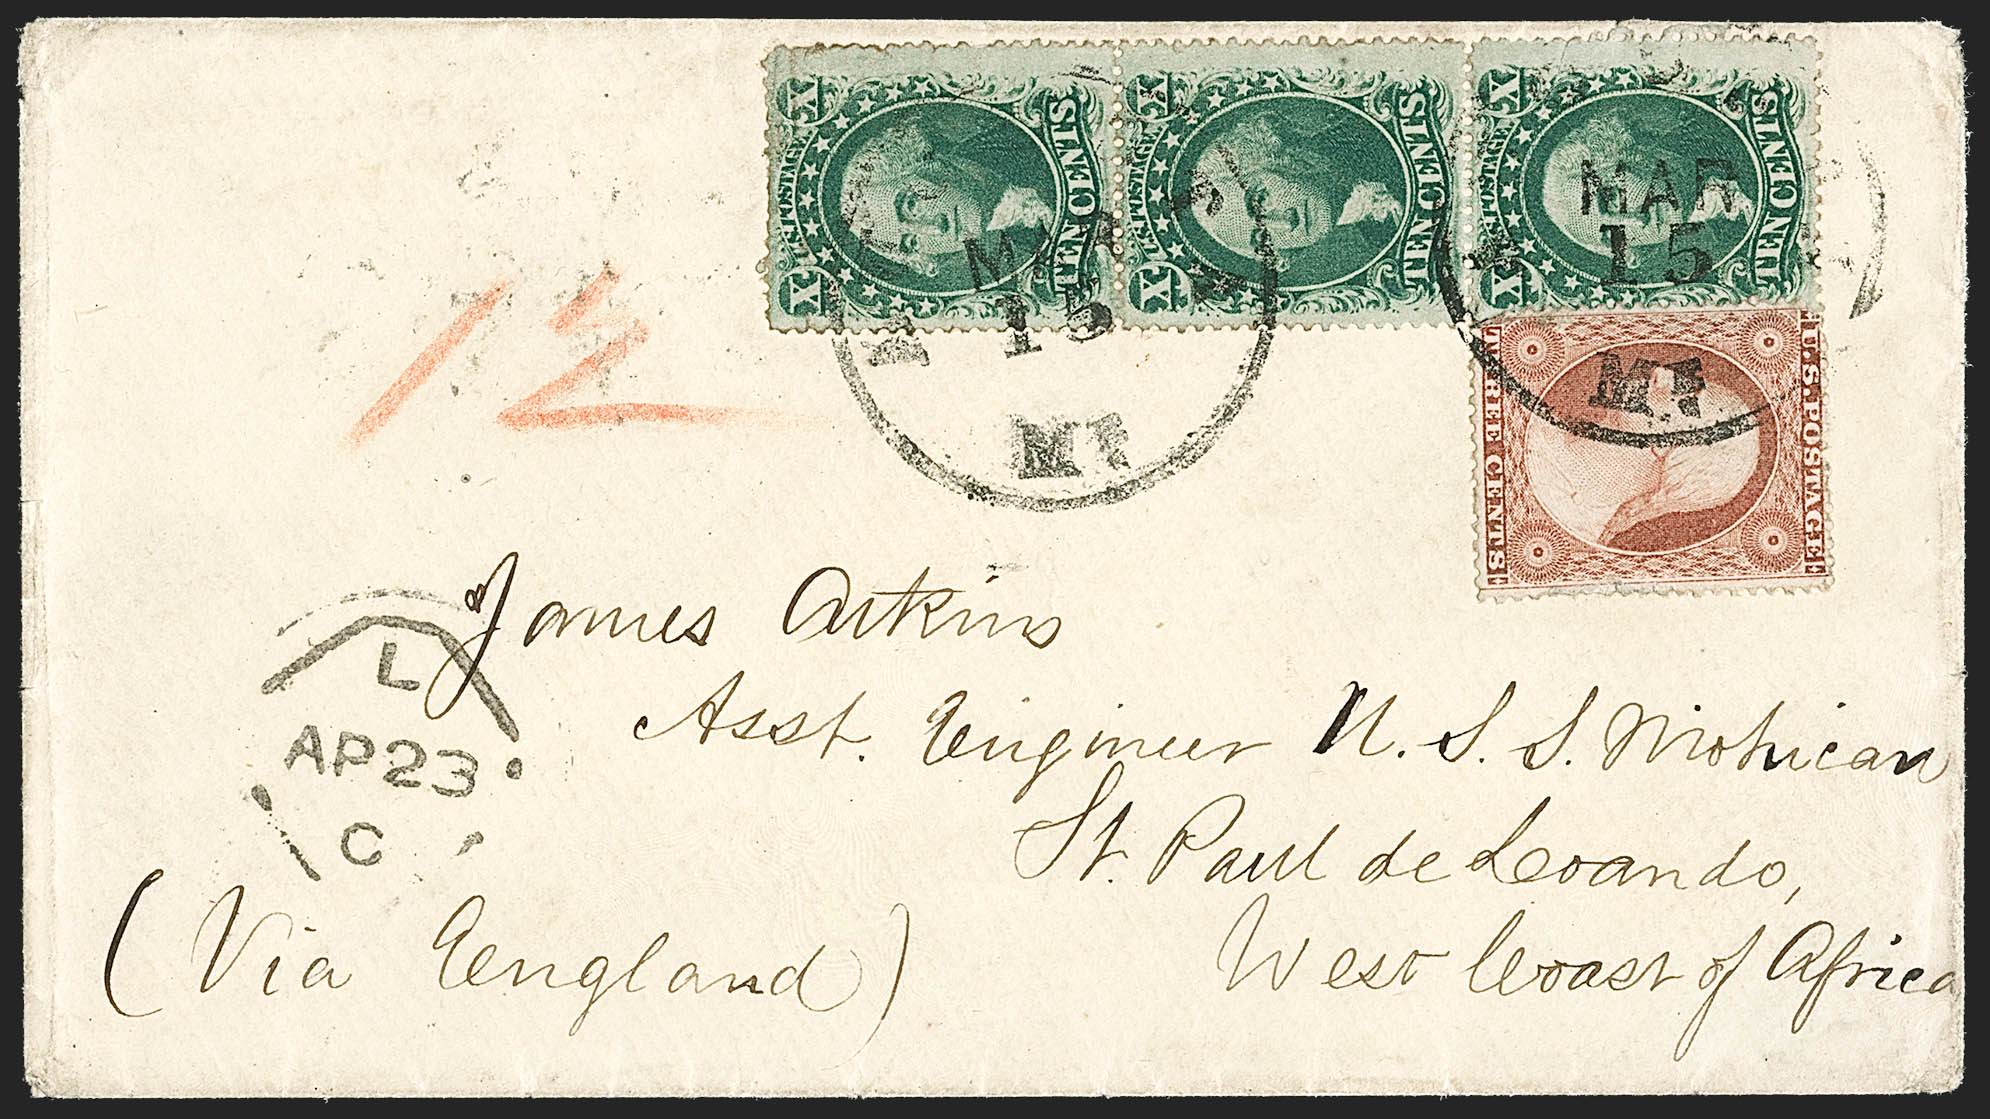 X U.S. POSTAGE X TEN CENTS
X U.S. POSTAGE X TEN CENTS
X U.S. POSTAGE X TEN CENTS
MAR
15
MAR
15
U.S. POSTAGE
THREE CENTS
12
James Atkins
Asst. Engineer U. S. S. Mohican
St. Paul de Loando,
West Coast of Africa
(Via England)
L
AP 23
C